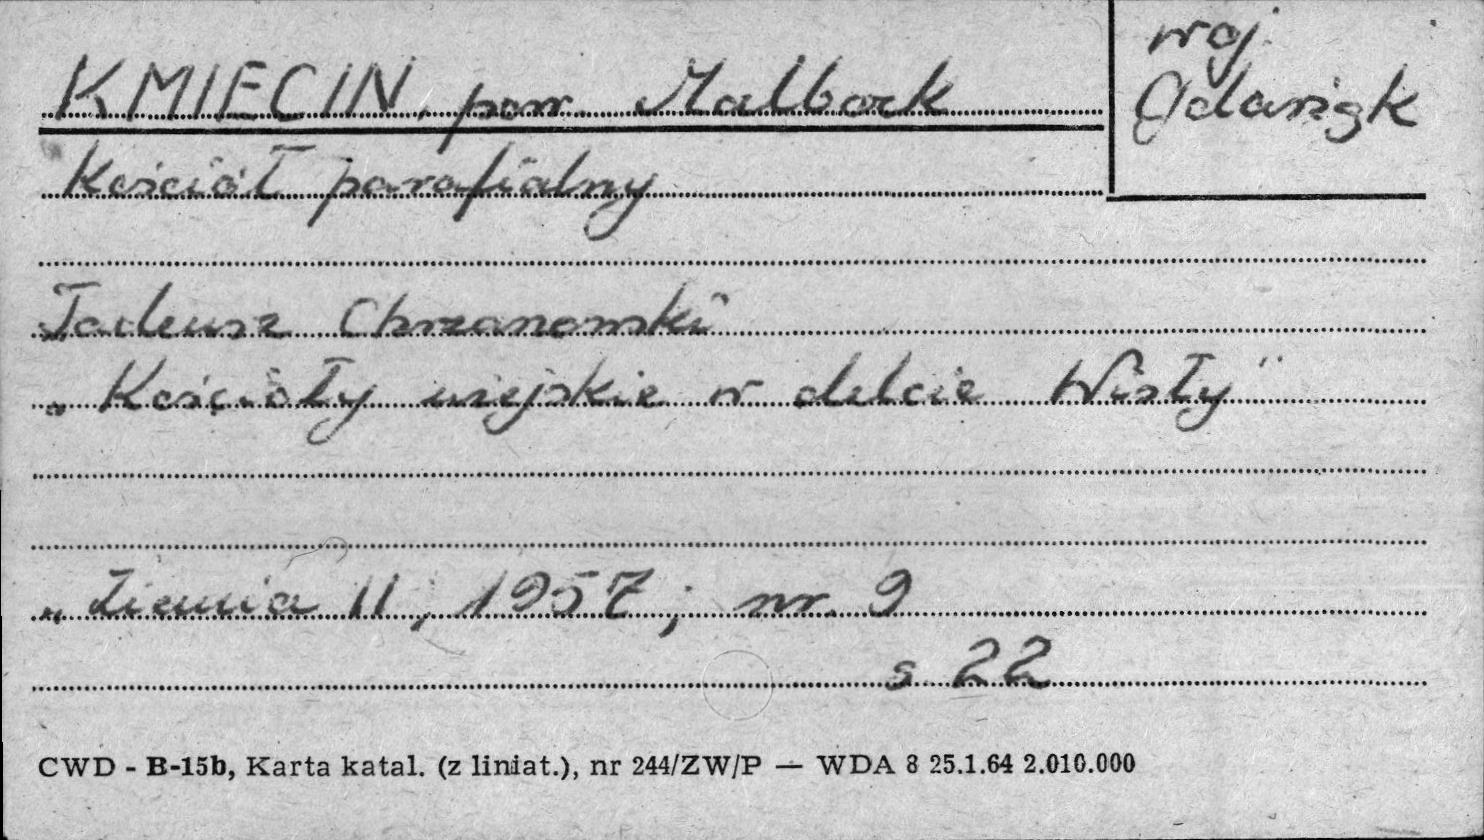 KMIECIN, pow. Malbork
woj.
Gdańsk
Kościół parafialny
Tadeusz Chrzanowski
„Kościoły wiejskie w delcie Wisły"
„Ziemia II, 1957; nr. 9
s. 22
CWD - B-15b, Karta katal. (z liniat.), nr 244/ZW/P — WDA 8 25.1.64 2.010.000